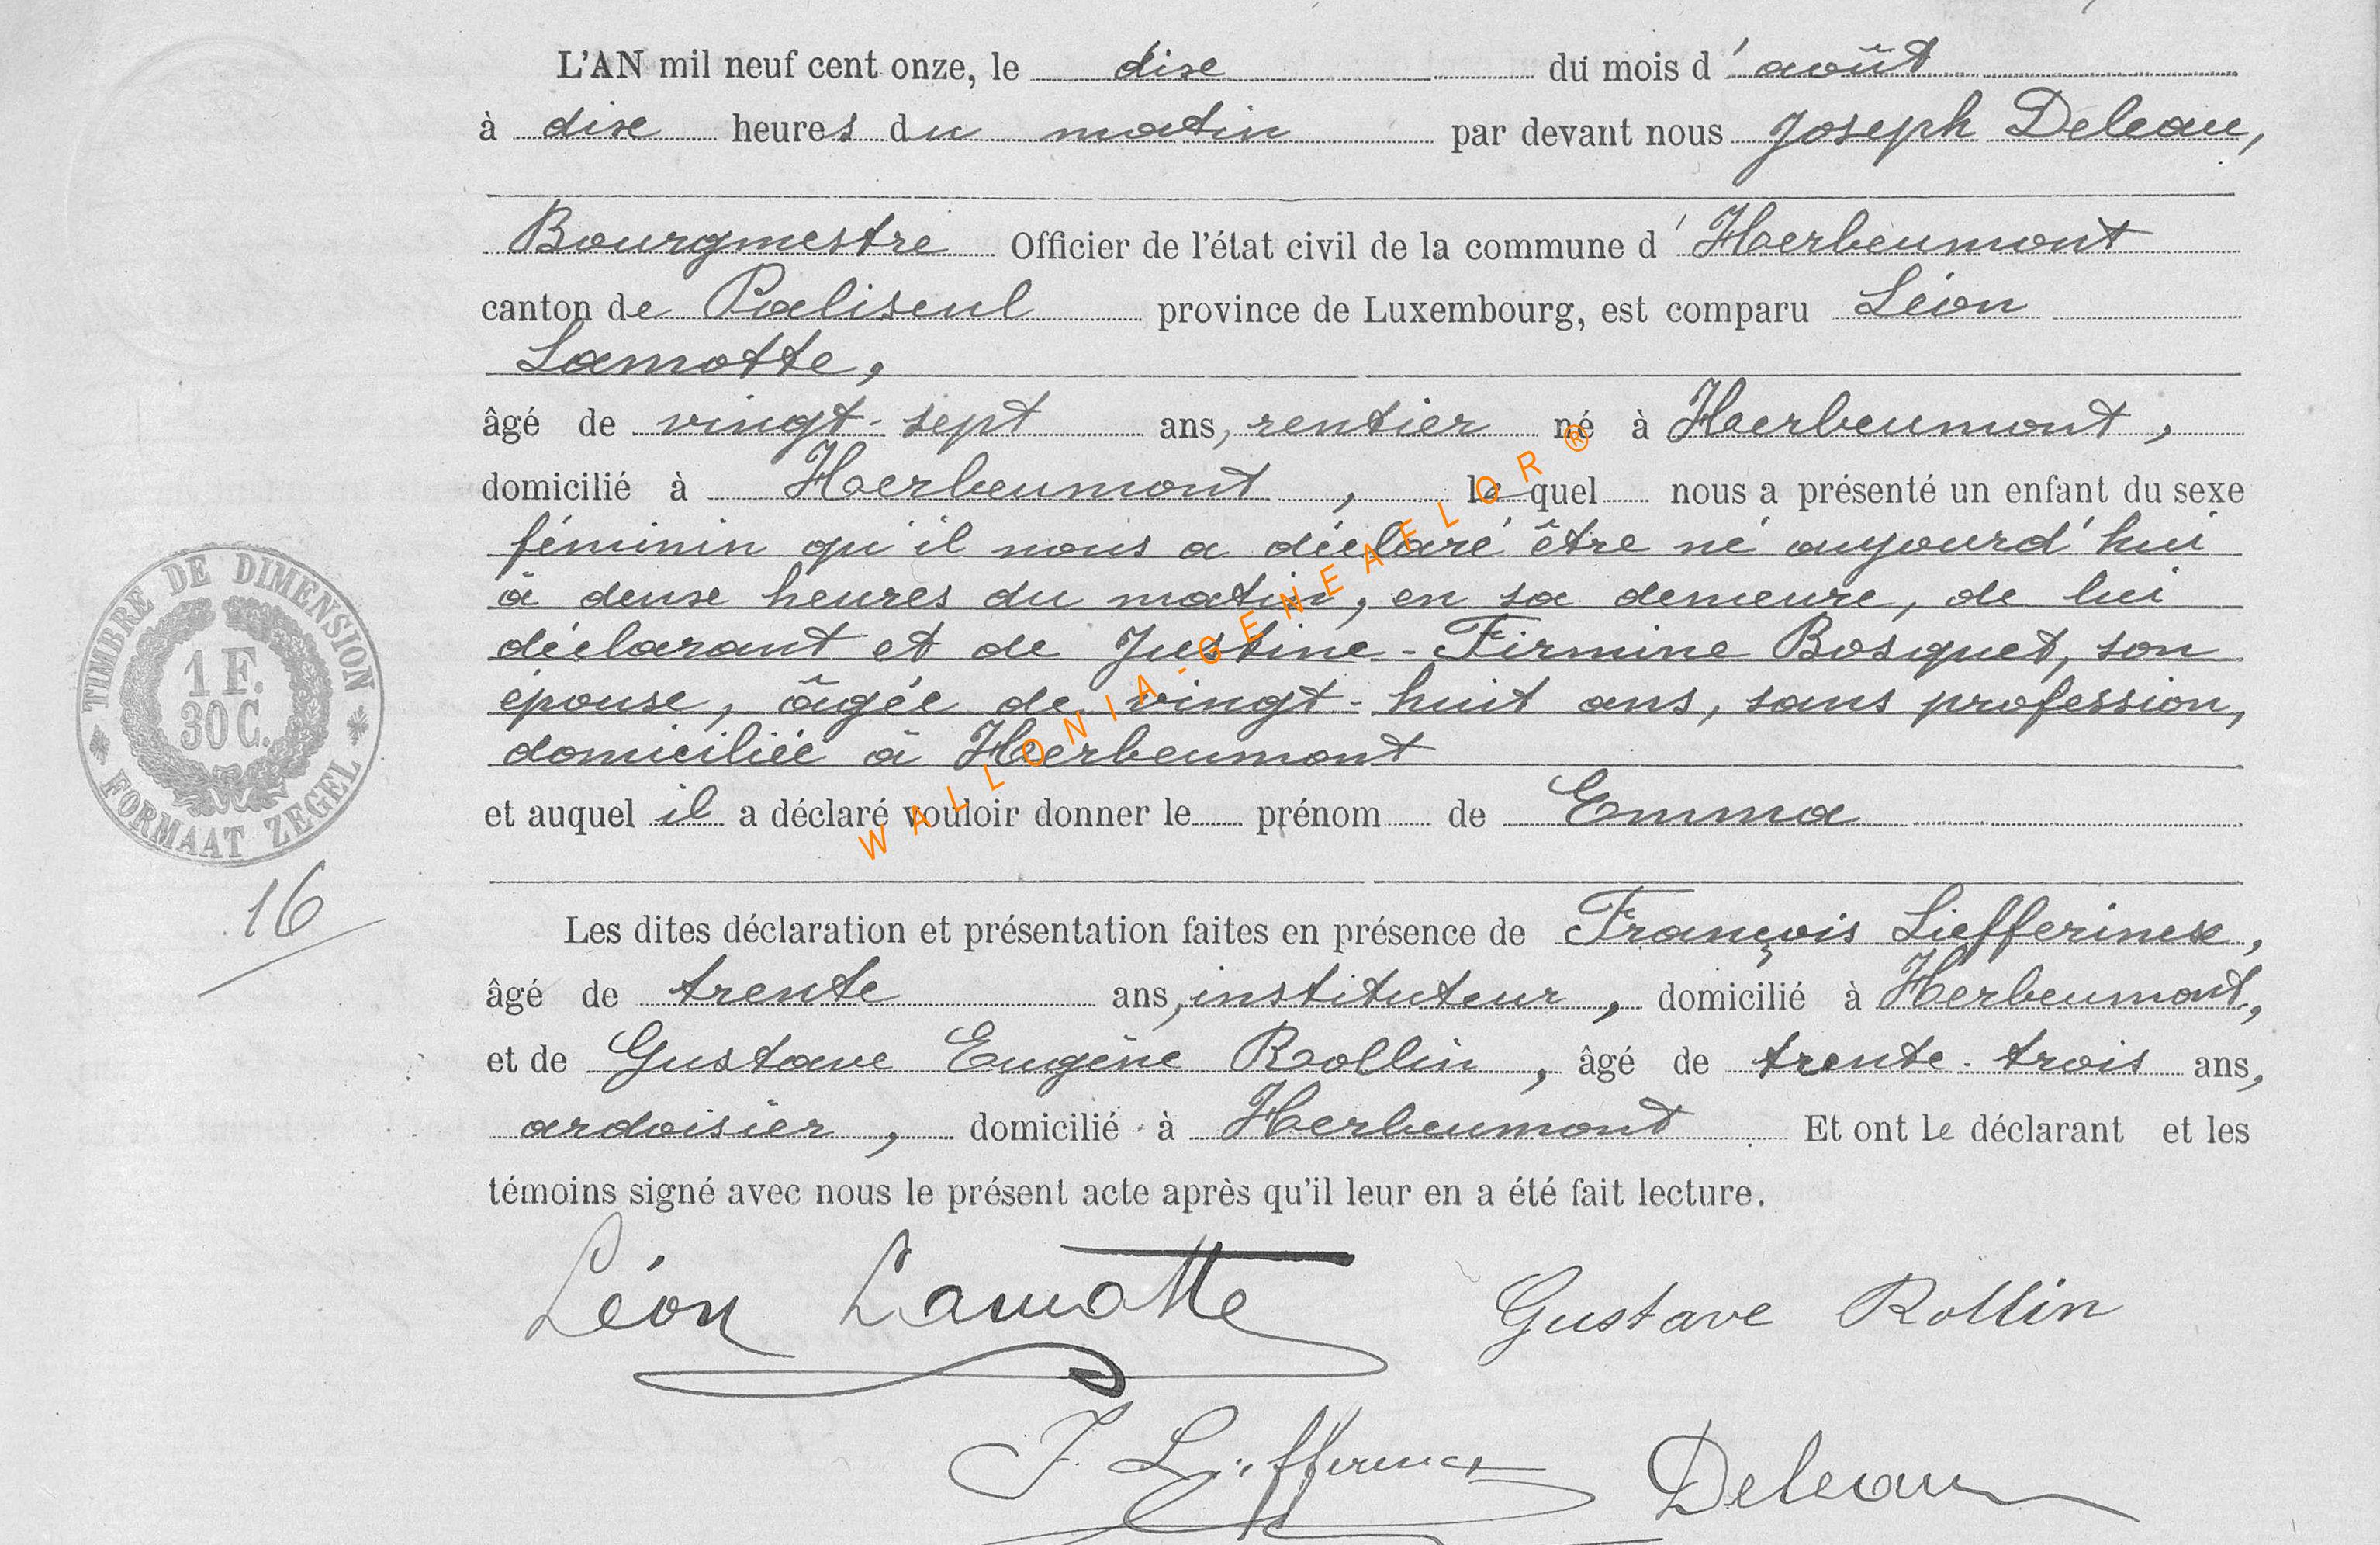 L'AN mil neuf cent onze, le dix du mois d'août
à dix heures du matin par devant nous Joseph Deleau,
Bourgmestre Officier de l'état civil de la commune d'Herbeumont
canton de Paliseul province de Luxembourg, est comparu Léon
Lamotte,
âgé de vingt-sept ans, rentier né à Herbeumont,
domicilié à Herbeumont, lequel nous a présenté un enfant du sexe
féminin qu'il nous a déclaré être né aujourd'hui
à deux heures du matin, en sa demeure, de lui
déclarant et de Justine-Firmine Bosquet, son
épouse, âgée de vingt-huit ans, sans profession,
domiciliée à Herbeumont
et auquel il a déclaré vouloir donner le prénom de Emma
Les dites déclaration et présentation faites en présence de François Liefferinckx,
âgé de trente ans, instituteur, domicilié à Herbeumont,
et de Gustave Eugène Rollin, âgé de trente-trois ans,
ardoisier, domicilié à Herbeumont. Et ont le déclarant et les
témoins signé avec nous le présent acte après qu'il leur en a été fait lecture.
Léon Lamotte Gustave Rollin
Deleau
TIMBRE DE DIMENSION
1 F.
30 C.
FORMAAT ZEGEL
16
WALLONIA-GENEAFELOR®